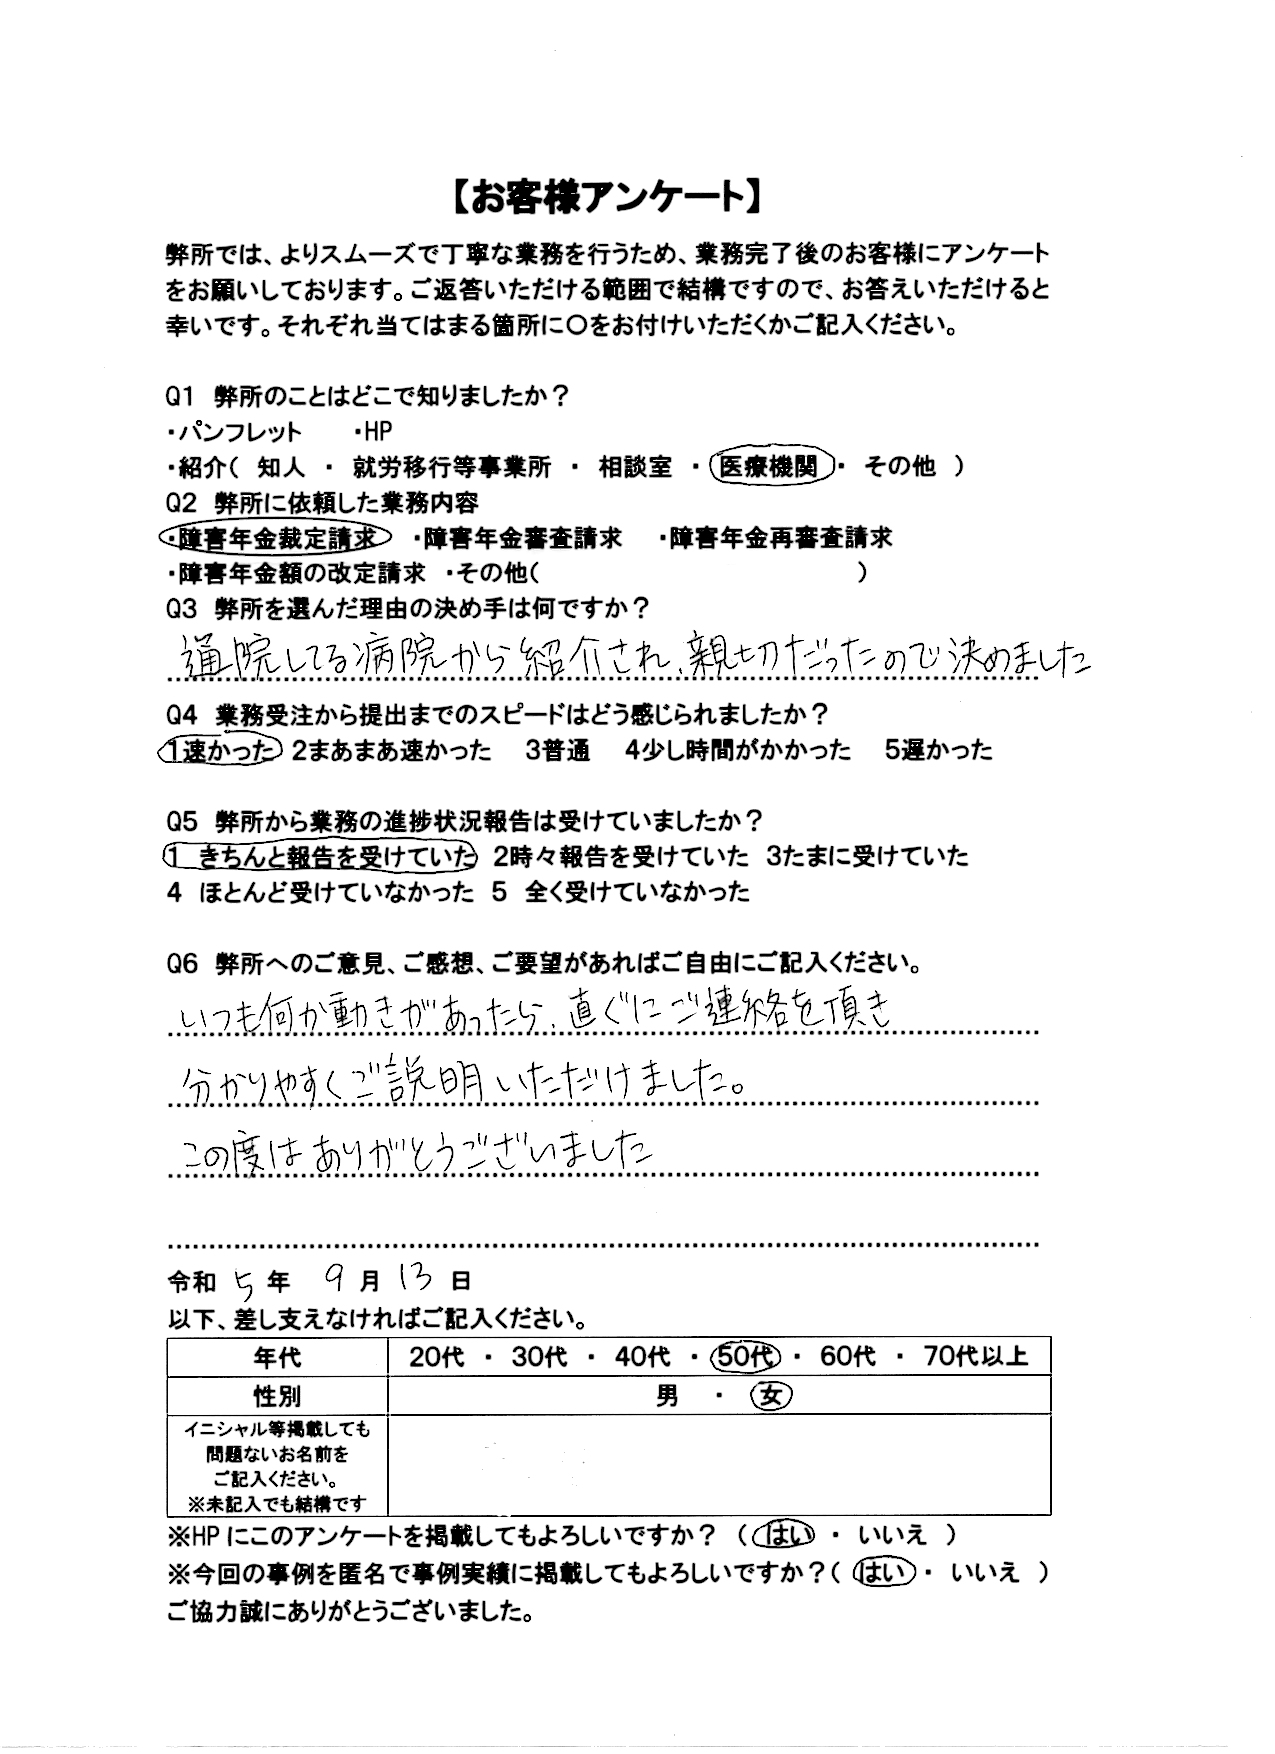 【お客様アンケート】
弊所では、よりスムーズで丁寧な業務を行うため、業務完了後のお客様にアンケート
をお願いしております。ご返答いただける範囲で結構ですので、お答えいただけると
幸いです。それぞれ当てはまる箇所に〇をお付けいただくかご記入ください。
Q1 弊所のことはどこで知りましたか？
・パンフレット ・HP
・紹介( 知人 ・ 就労移行等事業所 ・ 相談室 ・ 医療機関 ・ その他 )
Q2 弊所に依頼した業務内容
・障害年金裁定請求 ・障害年金審査請求 ・障害年金再審査請求
・障害年金額の改定請求 ・その他( )
Q3 弊所を選んだ理由の決め手は何ですか？
通院してる病院から紹介され、親切だったので決めました
Q4 業務受注から提出までのスピードはどう感じられましたか？
1速かった 2まあまあ速かった 3普通 4少し時間がかかった 5遅かった
Q5 弊所から業務の進捗状況報告は受けていましたか？
1 きちんと報告を受けていた 2時々報告を受けていた 3たまに受けていた
4 ほとんど受けていなかった 5 全く受けていなかった
Q6 弊所へのご意見、ご感想、ご要望があればご自由にご記入ください。
いつも何か動きがあったら、直ぐにご連絡を頂き
分かりやすくご説明いただけました。
この度はありがとうございました
令和 5 年 9 月 13 日
以下、差し支えなければご記入ください。
年代 20代 ・ 30代 ・ 40代 ・ 50代 ・ 60代 ・ 70代以上
性別 男 ・ 女
イニシャル等掲載しても
問題ないお名前を
ご記入ください。
※未記入でも結構です
※HPにこのアンケートを掲載してもよろしいですか？ ( はい ・ いいえ )
※今回の事例を匿名で事例実績に掲載してもよろしいですか？( はい ・ いいえ )
ご協力誠にありがとうございました。